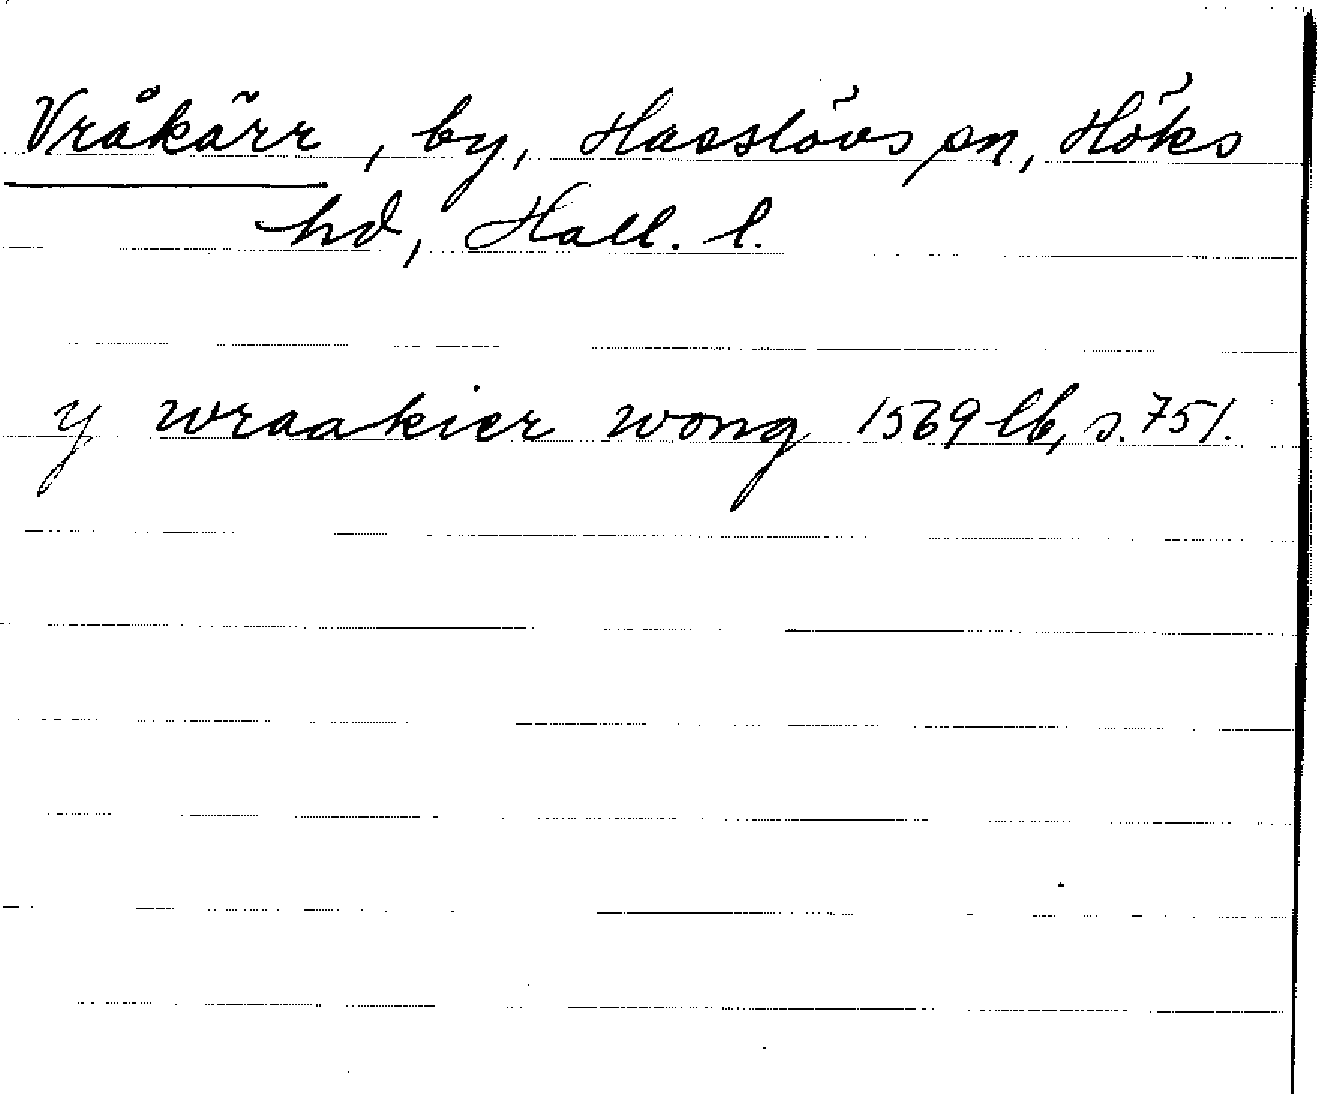 Vråkärr, by, Hasslövs sn, Höks
hd, Hall. l.
y wraakier wong 1569 lb, s. 751.